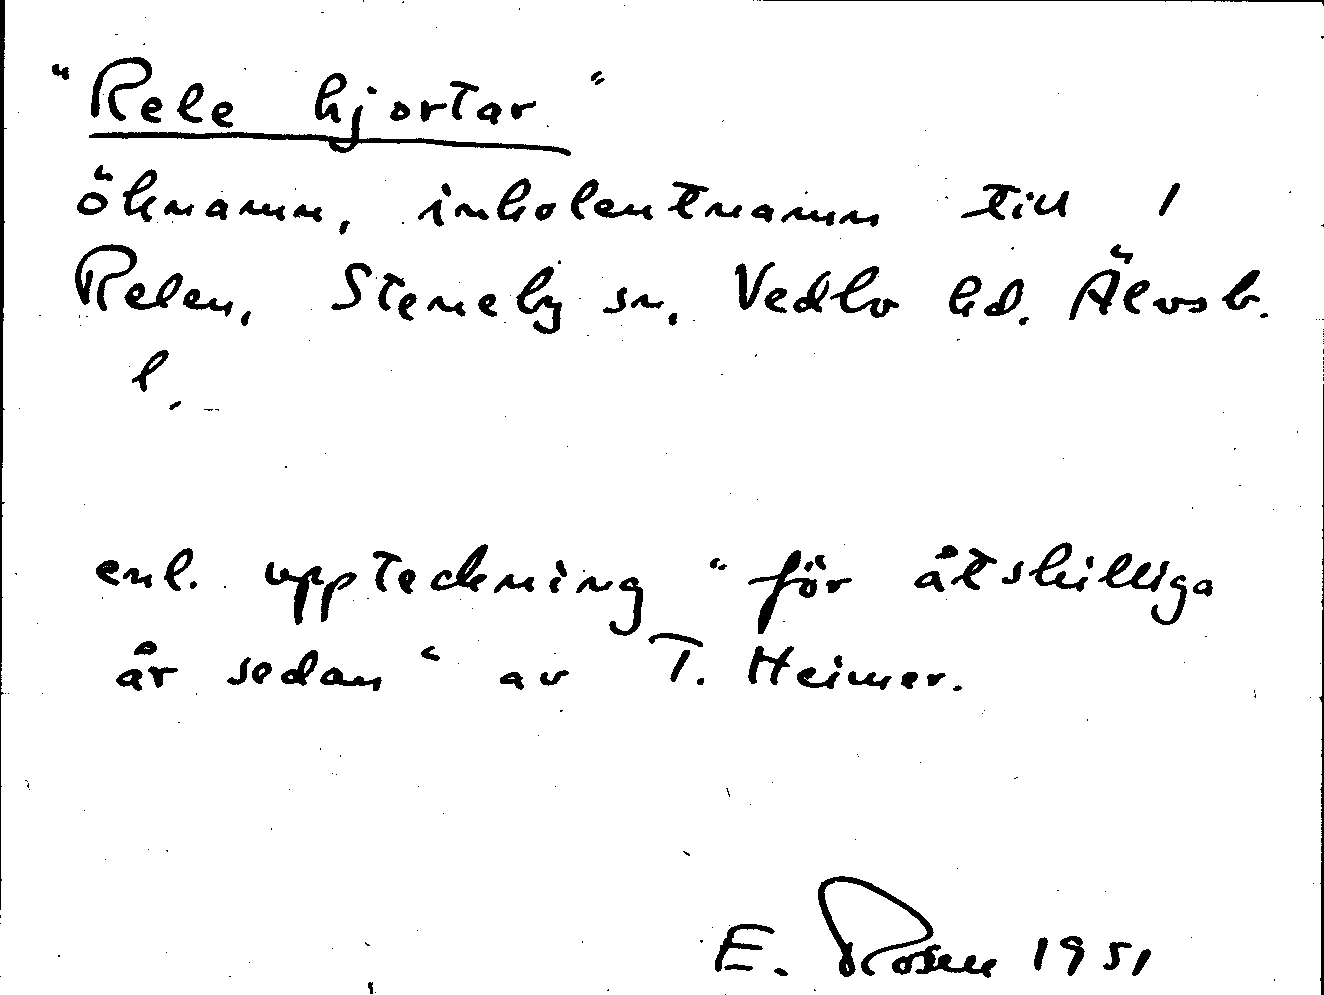 "Rele hjortar"
öknamn, inkolentnamn till 1
Relen, Steneby sn. Vedbo hd. Älvsb.
l.
enl. uppteckning "för åtskilliga
år sedan" av T. Heimer.
E. Rosen 1951